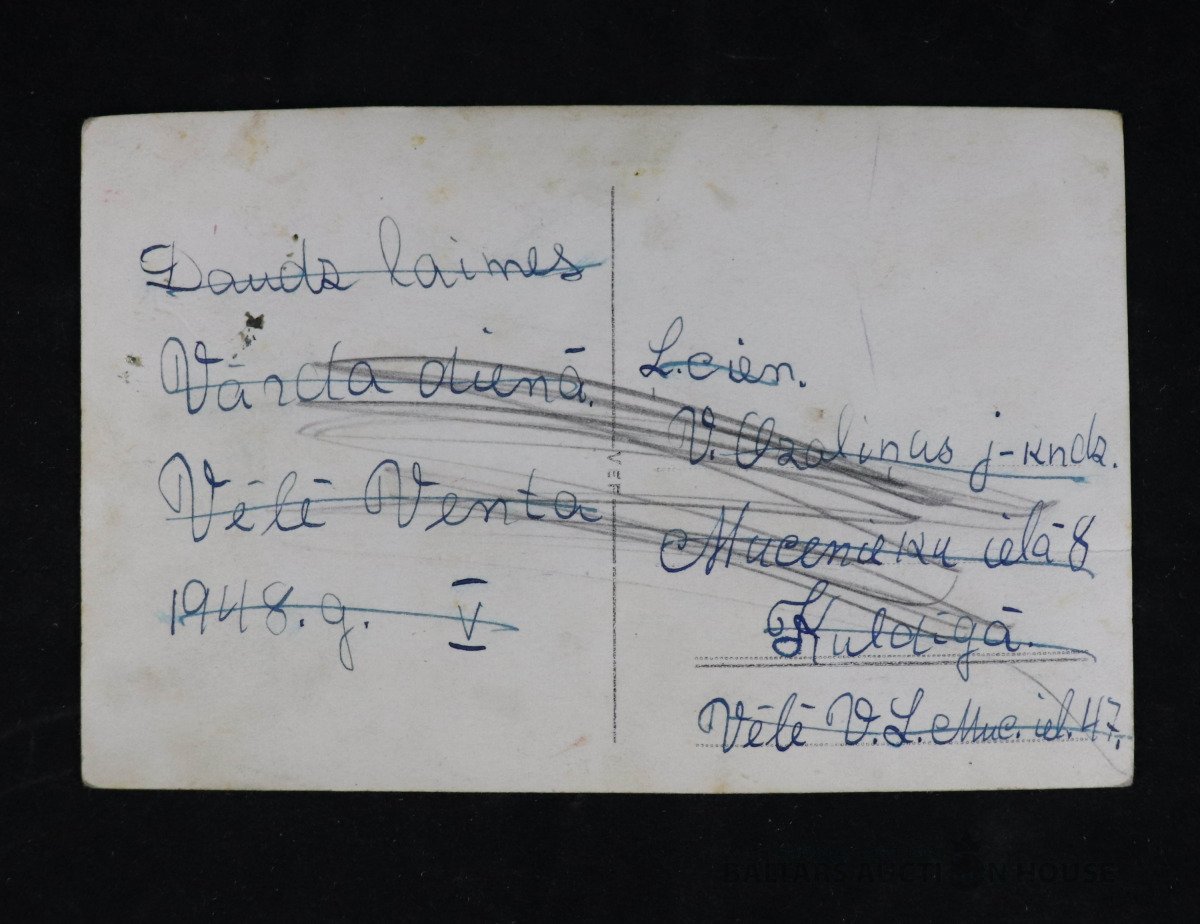 Daudz laimes
Vārda dienā.
Vēlē Venta
1948. g. V
L.cien.
V. Ozaliņas j-kndz.
Mucenieku ielā 8
Kuldīgā.
Vēlē V. L. Muc. iel. 47.
VEF
BALTARS AUCTION HOUSE